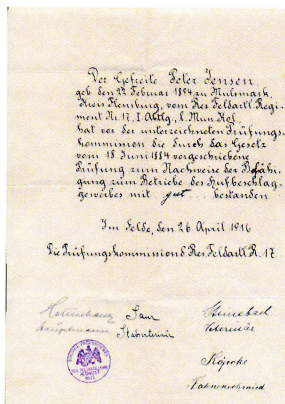 Der Gefreite Peter Jensen
geb. den 22. Februar 1894 zu Mulsmark,
Kreis Flensburg, vom Res Feldartl. Regi-
ment Nr. 17, I. Abtlg., l. Mun. Kol.
hat vor der unterzeichneten Prüfungs-
kommission die durch das Gesetz
vom 18 Juni 1884 vorgeschriebene
Prüfung zum Nachweise der Befähi-
gung zum Betriebe des Hufbeschlag-
gewerbes mit gut bestanden
Im Felde, den 26. April 1916
Die Prüfungskommission d. Res Feldartl. R. 17.
Hauptmann
Stabsveterinär
Veterinär
Köpcke
Fahnenschmied